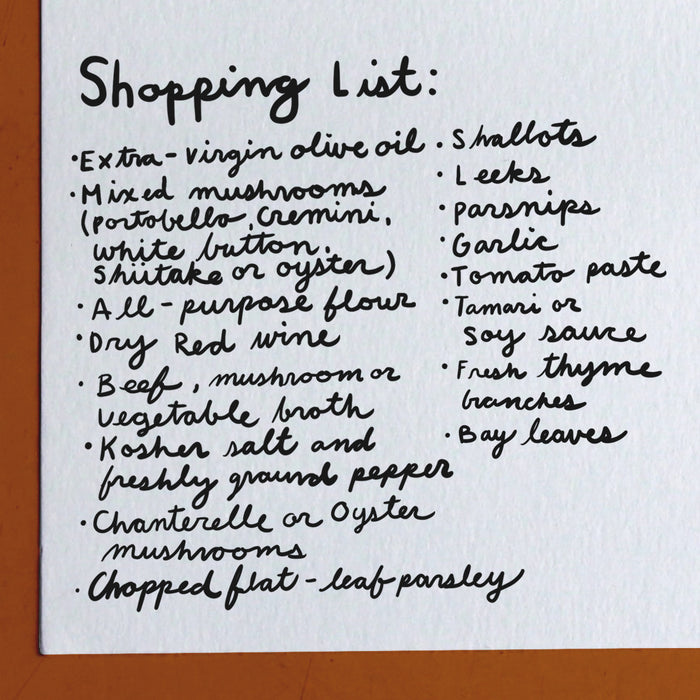 Shopping List:
•Extra-virgin olive oil
•Mixed mushrooms
(portobello, cremini,
white button,
shiitake or oyster)
•All-purpose flour
•Dry Red wine
•Beef, mushroom or
vegetable broth
•Kosher salt and
freshly ground pepper
•Chanterelle or Oyster
mushrooms
•Chopped flat-leaf parsley
•Shallots
•Leeks
•parsnips
•Garlic
•Tomato paste
•Tamari or
Soy sauce
•Fresh thyme
branches
•Bay leaves